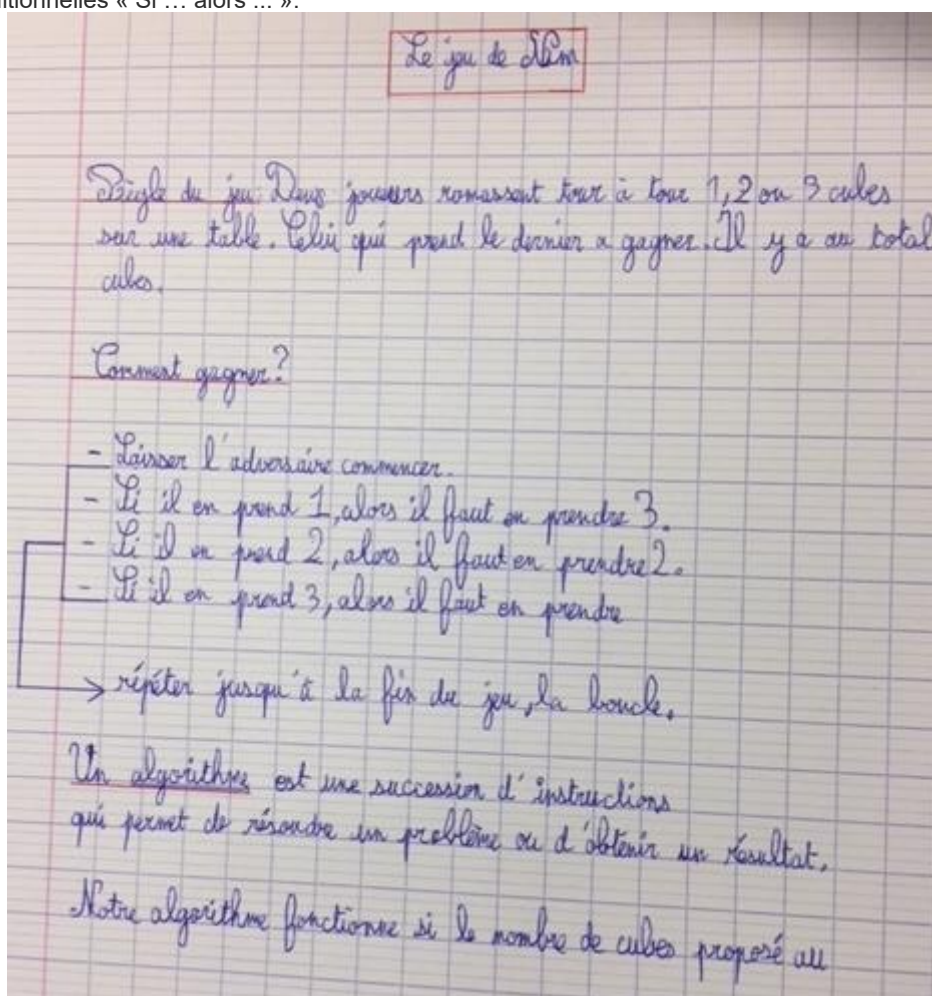 itionnelles « Si … alors ... ».
Le jeu de Nim
Règle du jeu: Deux joueurs ramassent tour à tour 1, 2 ou 3 cubes
sur une table. Celui qui prend le dernier a gagner. Il y a au total
cubes.
Comment gagner?
- Laisser l'adversaire commencer.
- Si il en prend 1, alors il faut en prendre 3.
- Si il en prend 2, alors il faut en prendre 2.
- Si il en prend 3, alors il faut en prendre
→ répéter jusqu'à la fin du jeu, la boucle.
Un algorithme est une succession d'instructions
qui permet de résoudre un problème ou d'obtenir un résultat.
Notre algorithme fonctionne si le nombre de cubes proposé au